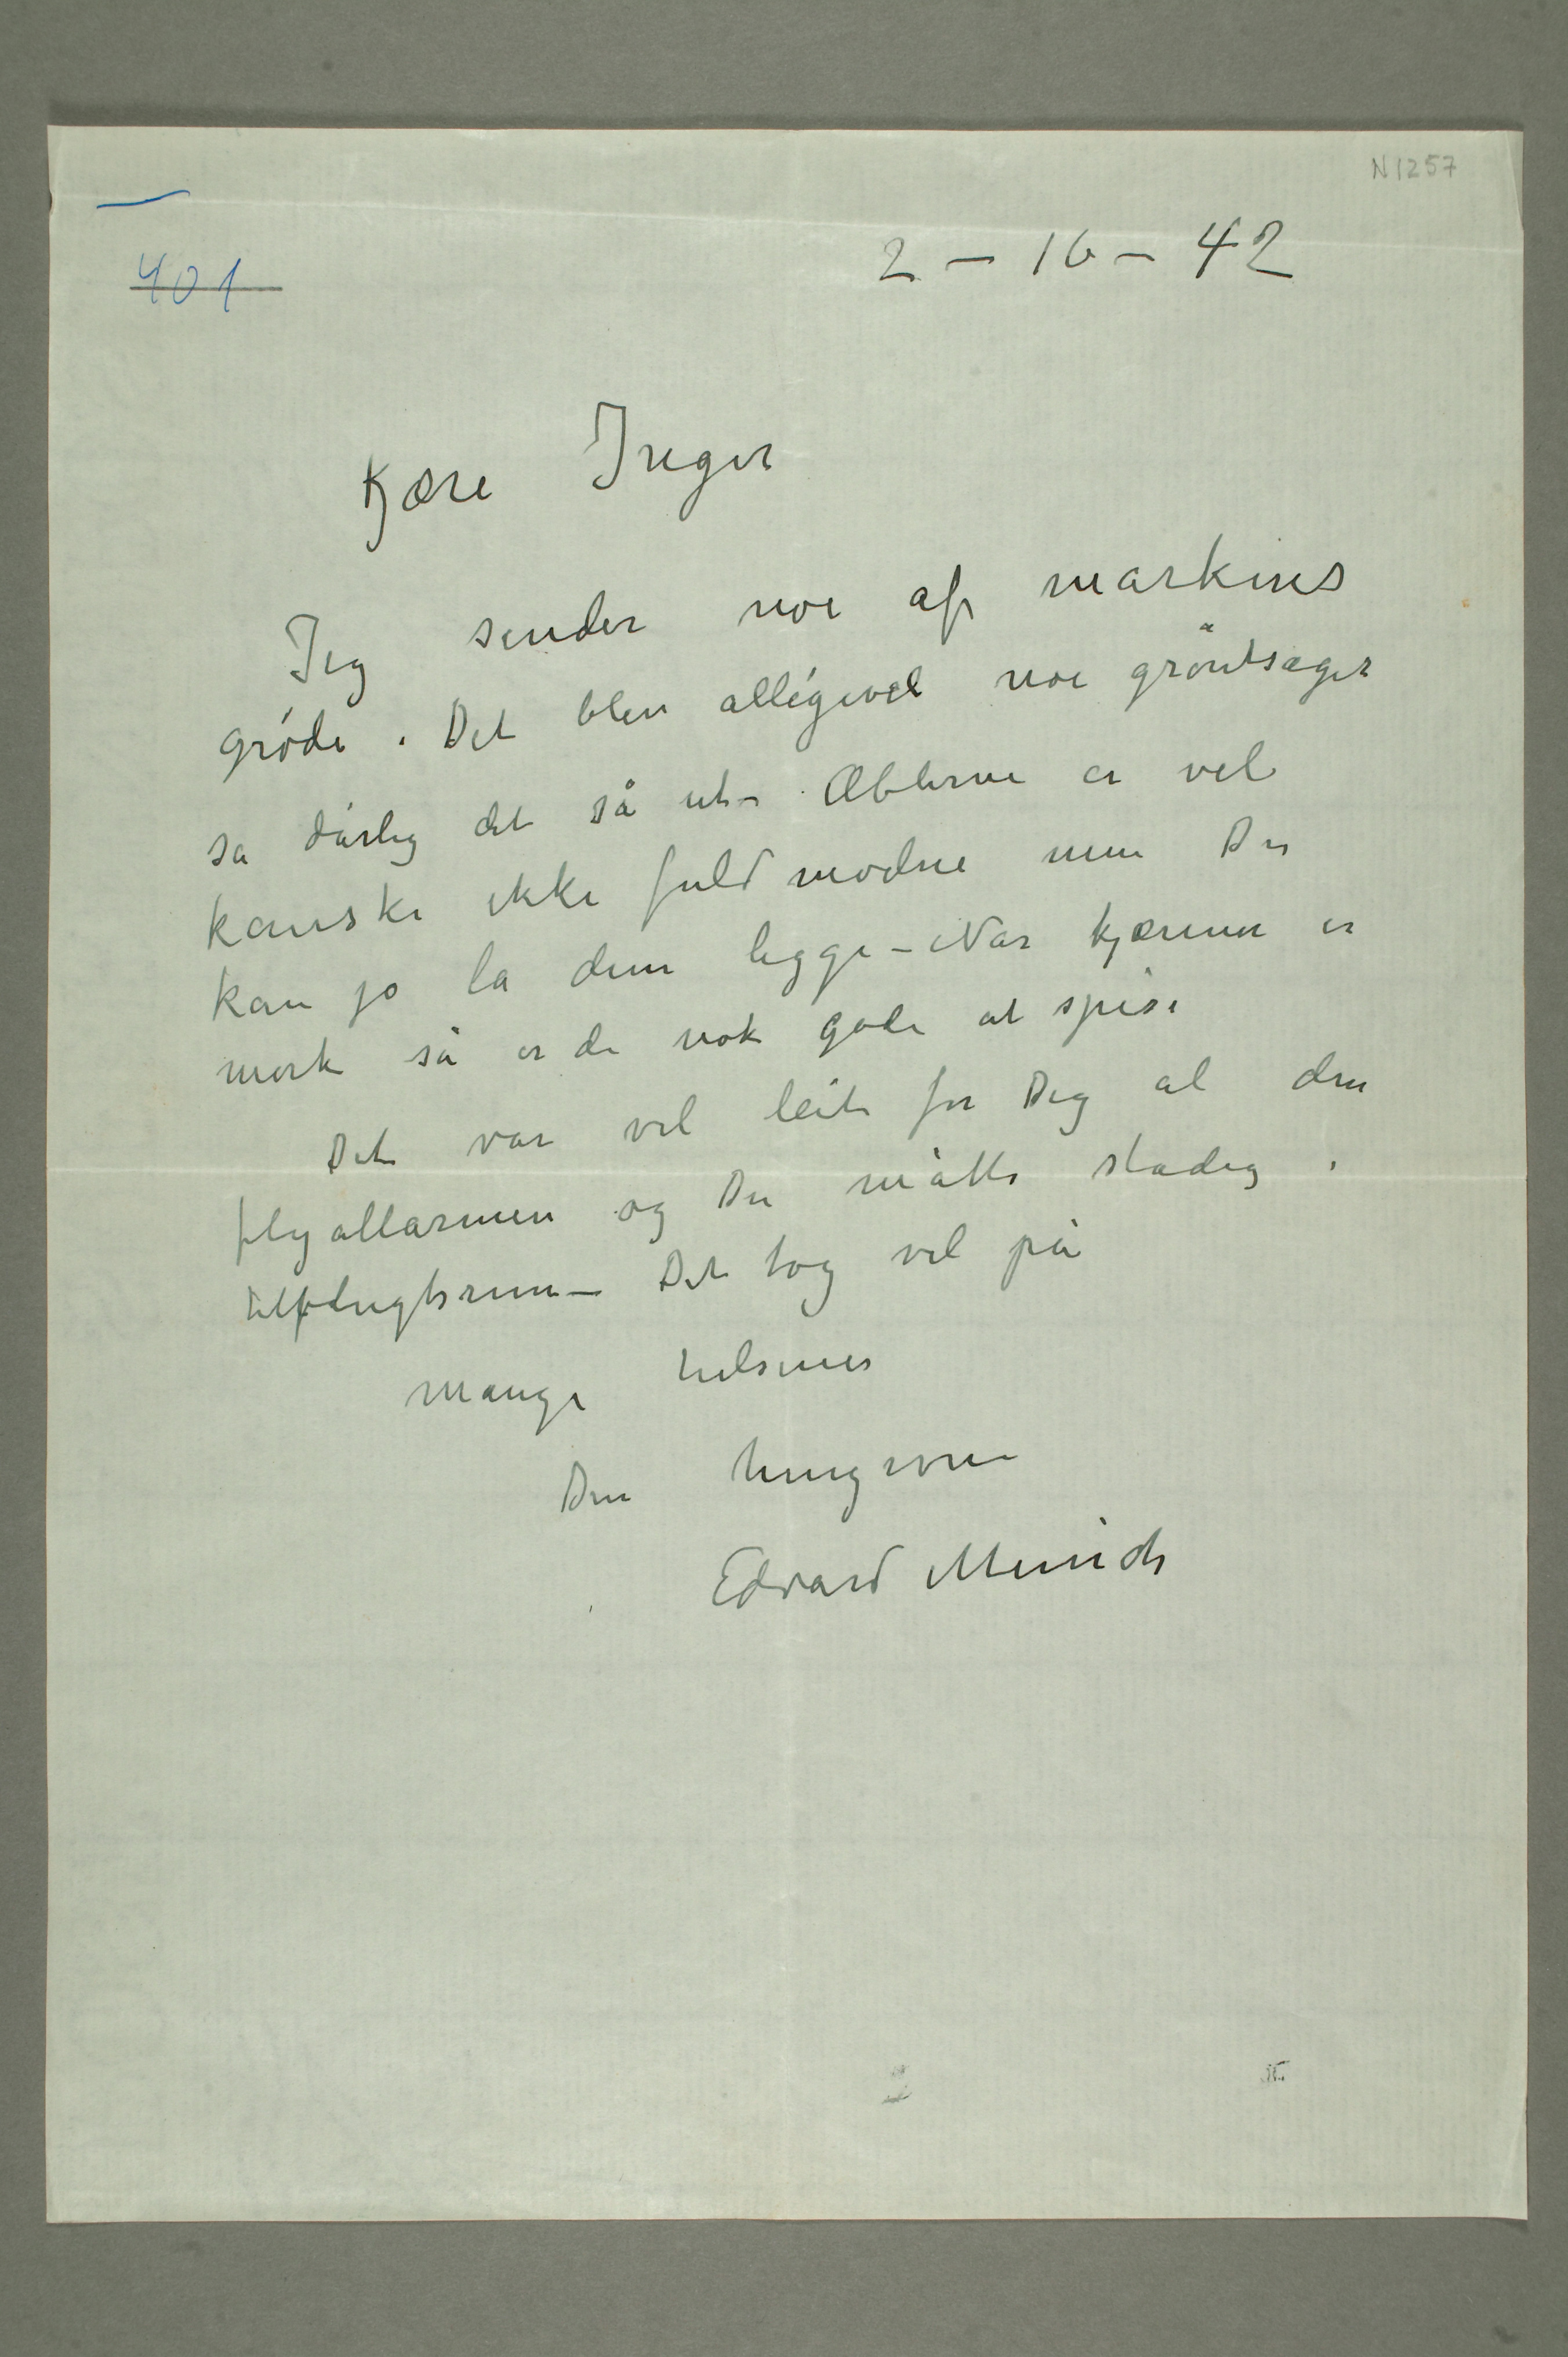 N1257
401
2 – 10 – 42
Kjære Inger
Jeg sender noe af markens
gröde. Det blev alligevel noe gröntsager
så dårlig det så ut – Æblerne er vel
kanske ikke fuldmodne men Du
kan jo la dem ligge – Når kjernen er
mörk så er de nok gode at spise
Det var vel leit for Dig al den
flyallarmen og Du måtte stadig i
tilflugtsrum – Det tog vel på
Mange hilsener
Din hengivne
Edvard Munch